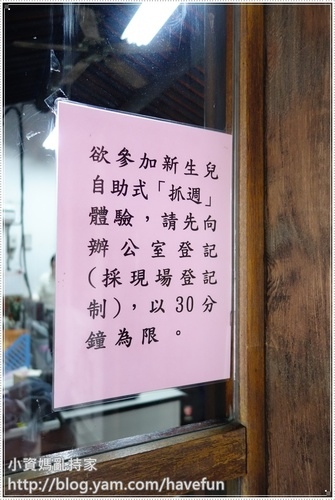 欲參加新生兒
自助式「抓週」
體驗，請先向
辦公室登記
(採現場登記
制)，以30分
鐘為限。
小資媽亂持家
http://blog.yam.com/havefun